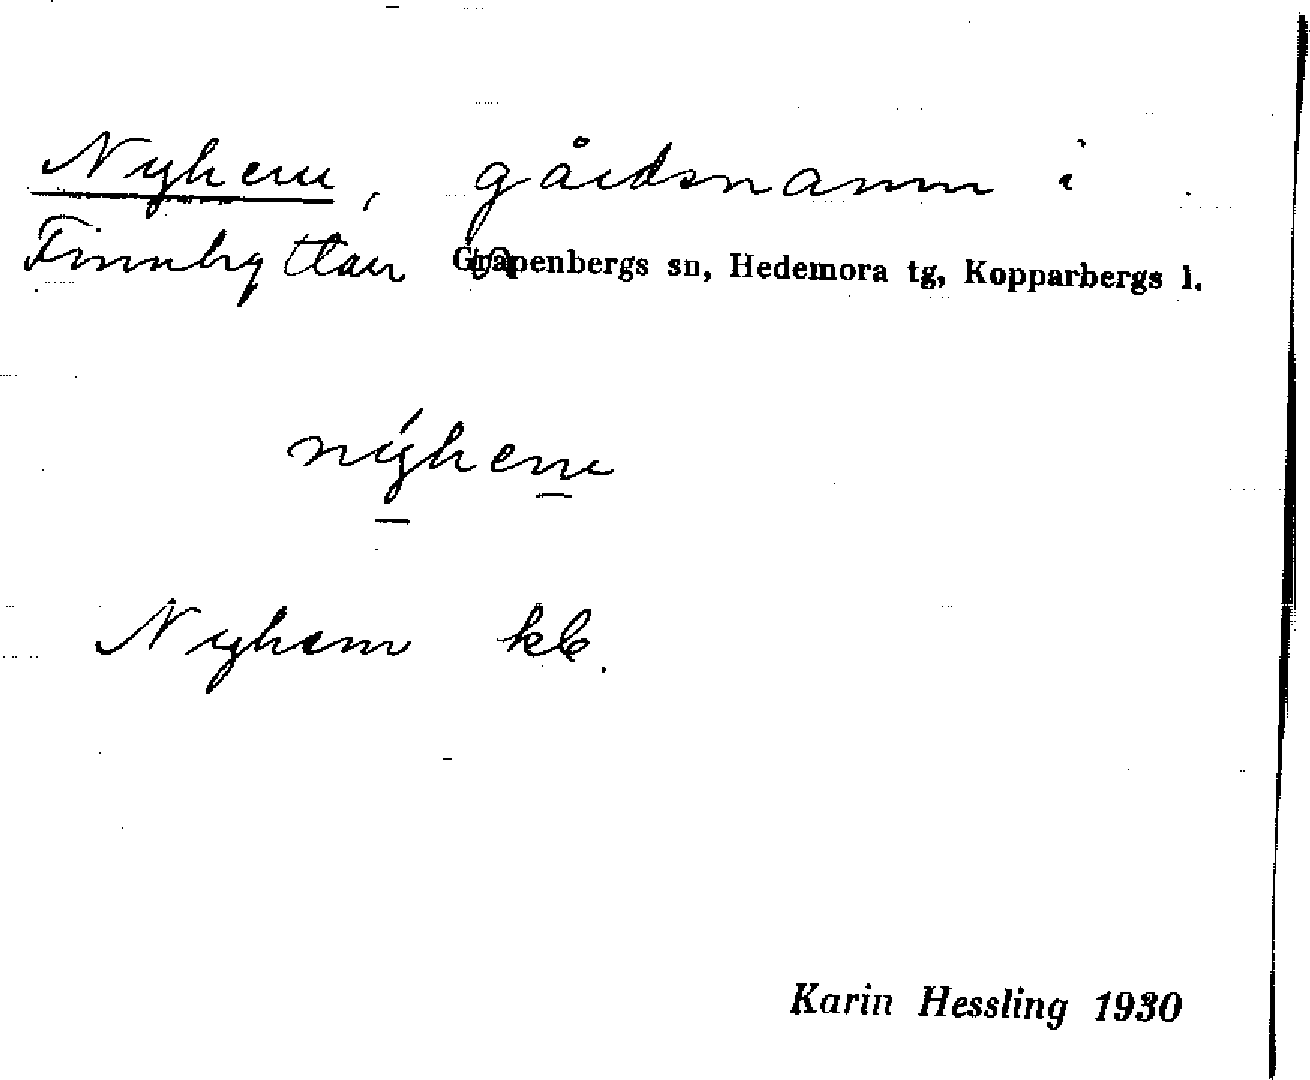 Nyhem, gårdsnamn i
Finnhyttan Garpenbergs sn, Hedemora tg, Kopparbergs l.
nýhem
Nyhem kb.
Karin Hessling 1930